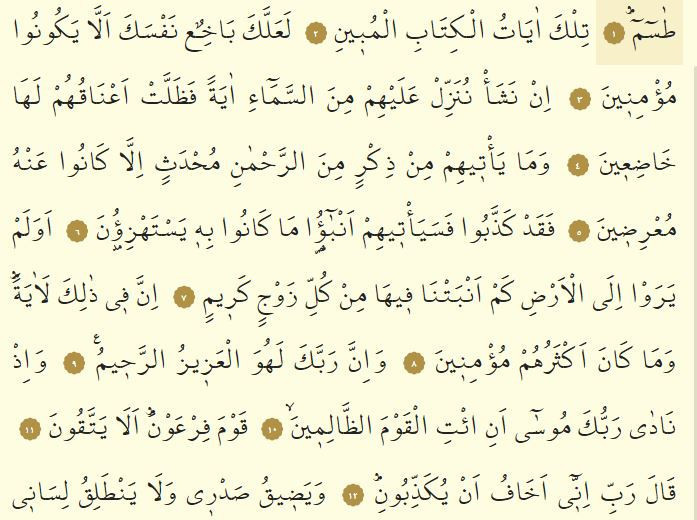 طٰسٓمٓ ۚ ﴿١﴾ تِلْكَ اٰيَاتُ الْكِتَابِ الْمُب۪ينِ ﴿٢﴾ لَعَلَّكَ بَاخِعٌ نَفْسَكَ اَلَّا يَكُونُوا
مُؤْمِن۪ينَ ﴿٣﴾ اِنْ نَشَأْ نُنَزِّلْ عَلَيْهِمْ مِنَ السَّمَٓاءِ اٰيَةً فَظَلَّتْ اَعْنَاقُهُمْ لَهَا
خَاضِع۪ينَ ﴿٤﴾ وَمَا يَأْت۪يهِمْ مِنْ ذِكْرٍ مِنَ الرَّحْمٰنِ مُحْدَثٍ اِلَّا كَانُوا عَنْهُ
مُعْرِض۪ينَ ﴿٥﴾ فَقَدْ كَذَّبُوا فَسَيَأْت۪يهِمْ اَنْبٰٓؤُ۬ا مَا كَانُوا بِه۪ يَسْتَهْزِؤُ۫نَ ﴿٦﴾ اَوَلَمْ
يَرَوْا اِلَى الْاَرْضِ كَمْ اَنْبَتْنَا ف۪يهَا مِنْ كُلِّ زَوْجٍ كَر۪يمٍ ﴿٧﴾ اِنَّ ف۪ي ذٰلِكَ لَاٰيَةًۜ
وَمَا كَانَ اَكْثَرُهُمْ مُؤْمِن۪ينَ ﴿٨﴾ وَاِنَّ رَبَّكَ لَهُوَ الْعَز۪يزُ الرَّح۪يمُ۟ ﴿٩﴾ وَاِذْ
نَادٰى رَبُّكَ مُوسٰٓى اَنِ ائْتِ الْقَوْمَ الظَّالِم۪ينَۙ ﴿١٠﴾ قَوْمَ فِرْعَوْنَۜ اَلَا يَتَّقُونَ ﴿١١﴾
قَالَ رَبِّ اِنّ۪ٓي اَخَافُ اَنْ يُكَذِّبُونِۜ ﴿١٢﴾ وَيَض۪يقُ صَدْر۪ي وَلَا يَنْطَلِقُ لِسَان۪ي